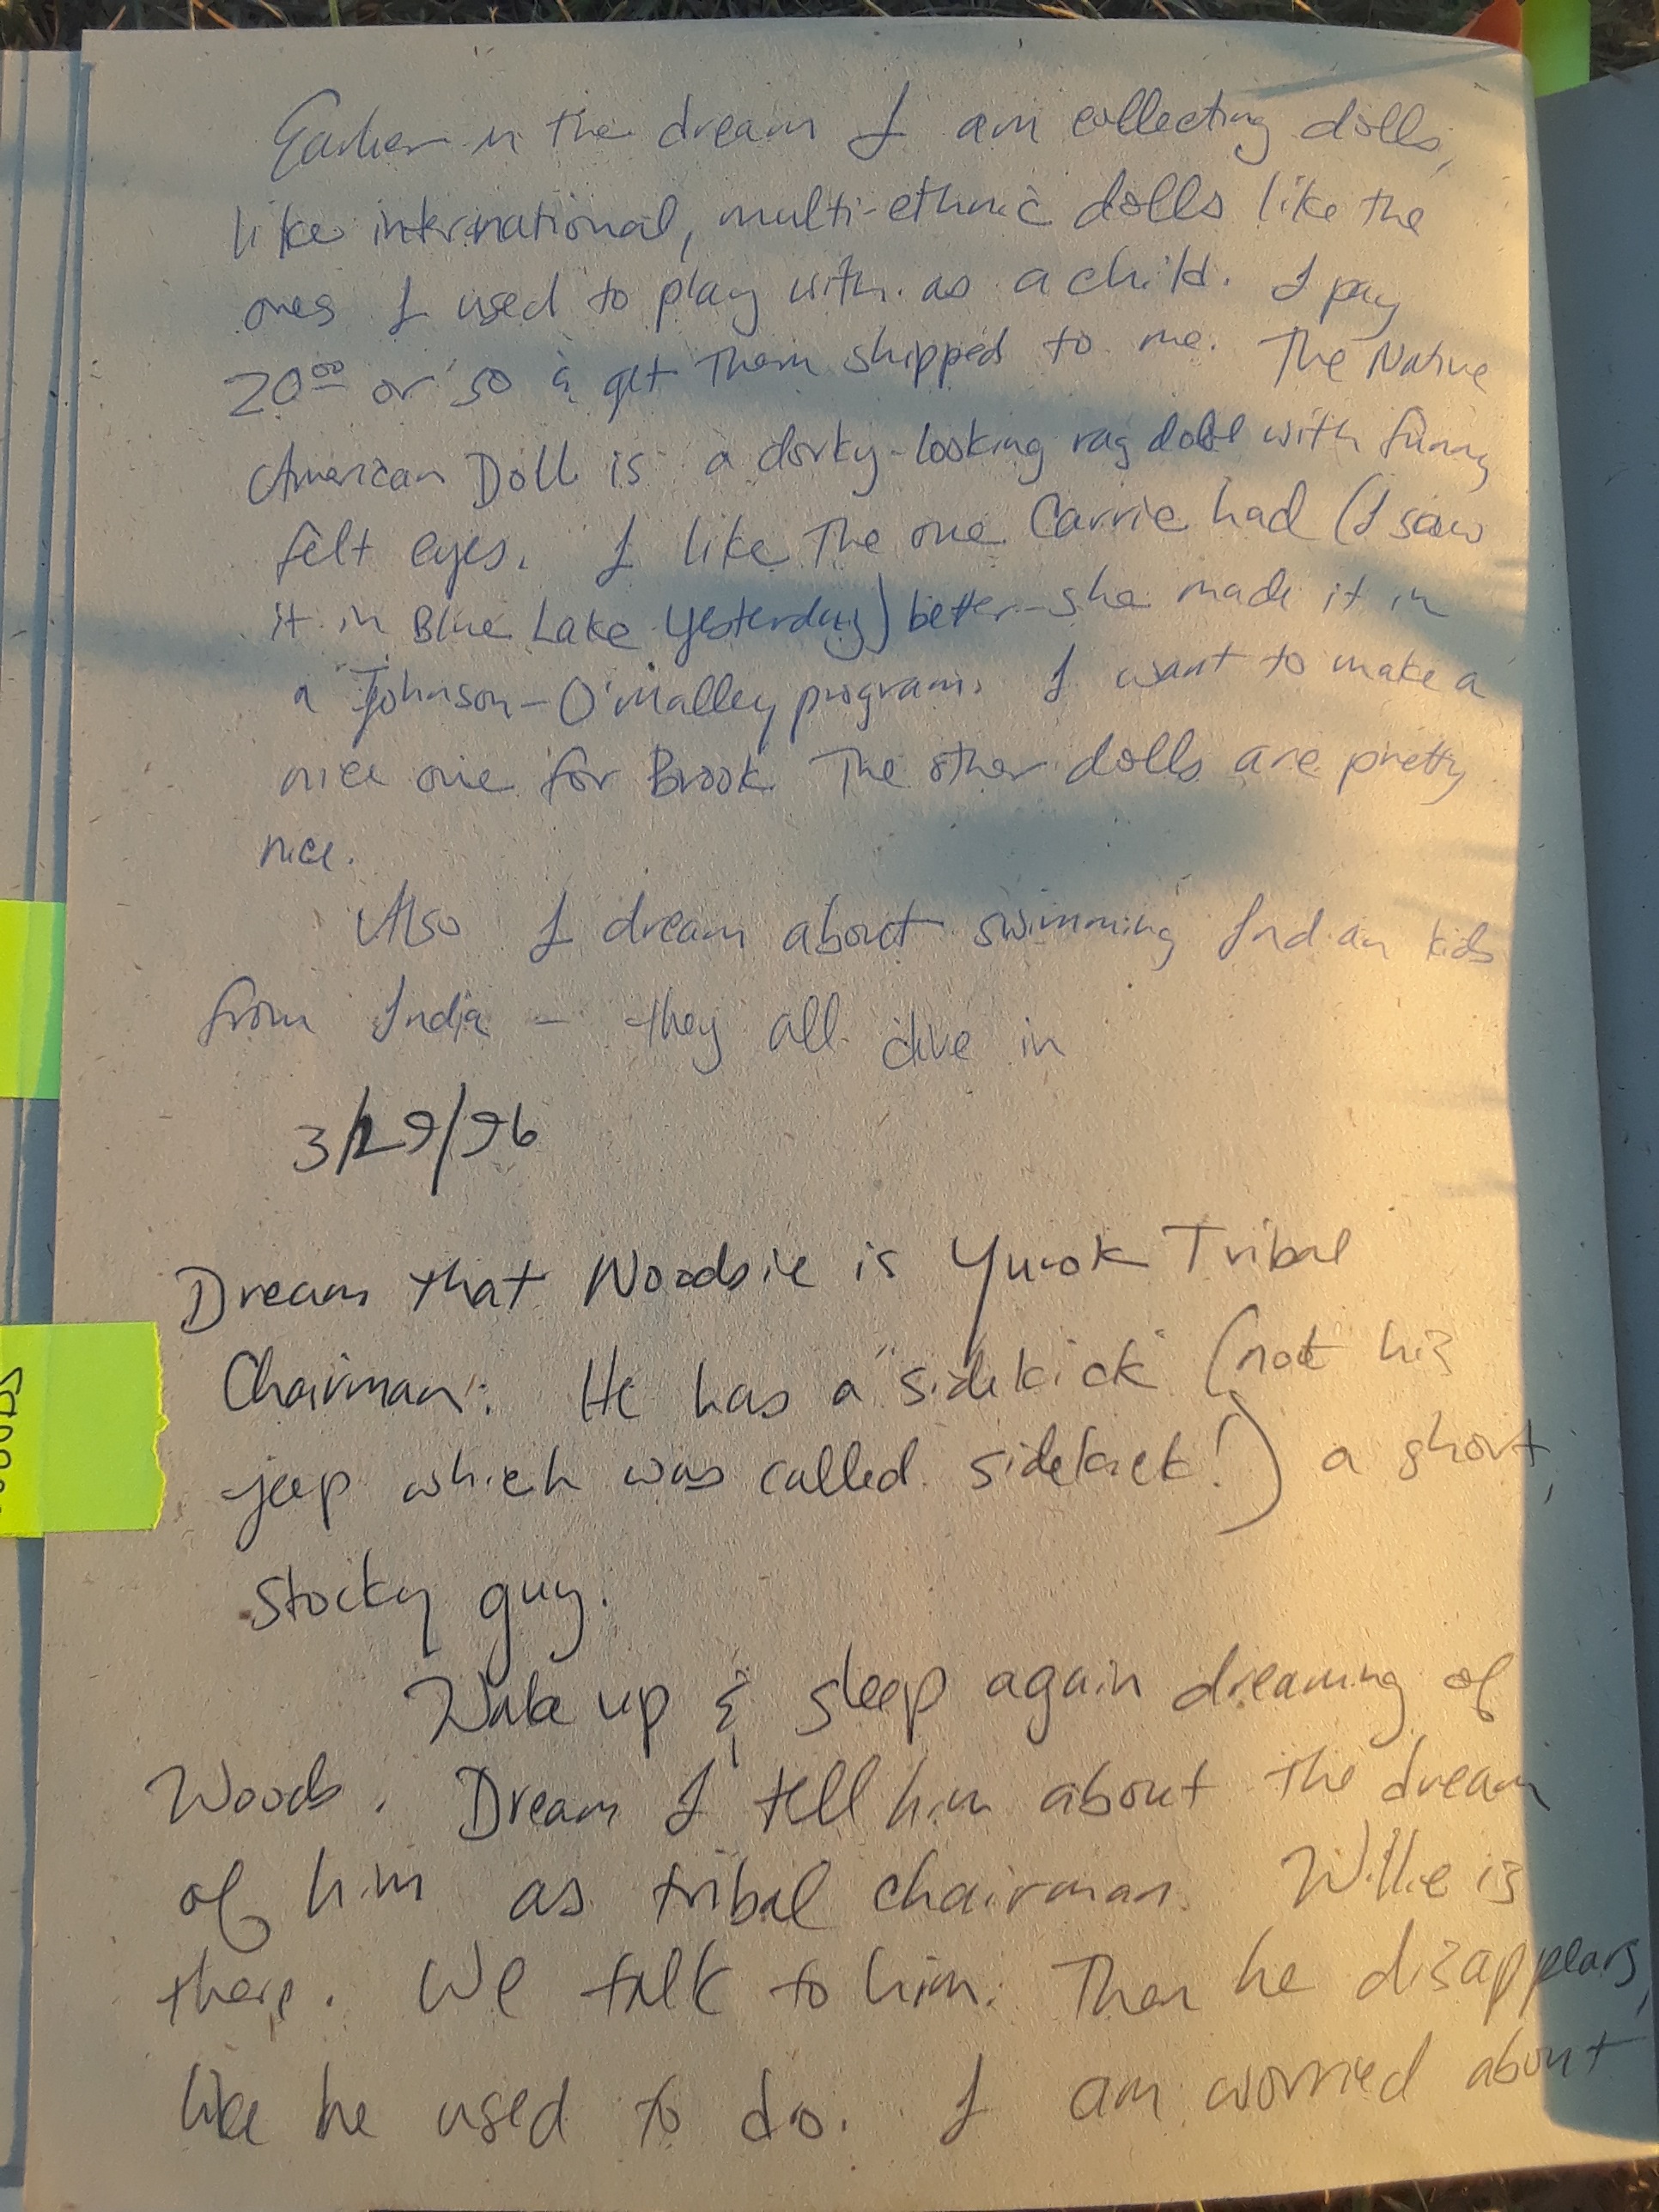 Earlier in the dream I am collecting dolls,
like international, multi-ethnic dolls like the
ones I used to play with as a child. I pay
20.00 or so & get them shipped to me. The Native
American Doll is a dorky-looking rag doll with funny
felt eyes. I like the one Carrie had (I saw
it in Blue Lake yesterday) better - she made it in
a Johnson-O'Malley program. I want to make a
nice one for Brook. The other dolls are pretty
nice.
Also I dream about swimming Indian kids
from India - they all dive in
3/29/96
Dream that Woodsie is Yurok Tribal
Chairman. He has a "sidekick" (not his
jeep which was called sidekick!) a short,
stocky guy.
Wake up & sleep again dreaming of
Woods. Dream I tell him about the dream
of him as tribal chairman. Willie is
there. We talk to him. Then he disappears,
like he used to do. I am worried about
WOODS